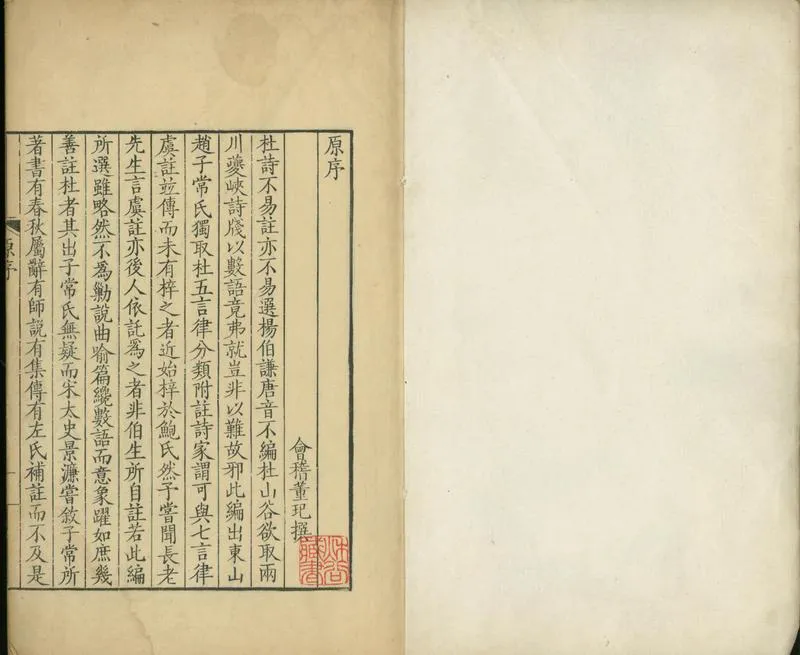 原序
會稽董玘撰
杜詩不易註亦不易選楊伯謙唐音不編杜山谷欲取兩
川夔峽詩牋以數語竟弗就豈非以難故邪此編出東山
趙子常氏獨取杜五言律分類附註詩家謂可與七言律
虞註並傳而未有梓之者近始梓於鮑氏然予嘗聞長老
先生言虞註亦後人依託為之者非伯生所自註若此編
所選雖略然不為勦說曲喻篇纔數語而意象躍如庶幾
善註杜者其出子常氏無疑而宋太史景濂嘗敘子常所
著書有春秋屬辭有師說有集傳有左氏補註而不及是
原序
藏書